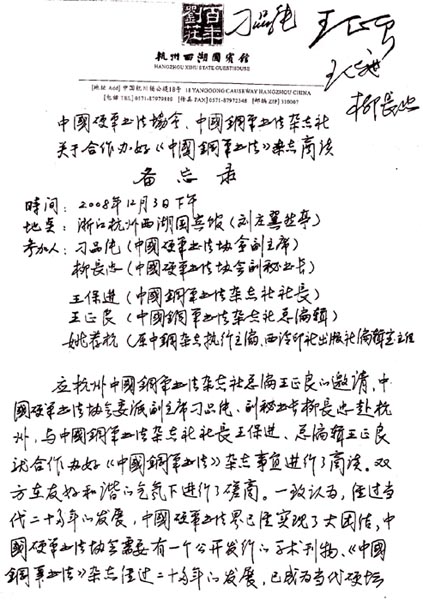 百年
劉莊
刁品纯
王正良
王保进
柳長忠
杭州西湖國賓館
HANGZHOU XIHU STATE GUESTHOUSE
[地址 Add] 中国杭州杨公堤18号 18 YANGGONG CAUSEWAY HANGZHOU CHINA
[电话 TEL] 0571-87979889 [传真 FAX] 0571-87972348 [邮编 ZIP] 310007
中国硬笔书法协会、中国鋼筆书法杂志社
关于合作办好《中國鋼筆书法》杂志商谈
备忘录
时间：2008年12月3日下午
地点：浙江杭州西湖国宾馆（刘庄翼然亭）
参加人：刁品纯（中國硬筆书法协會副主席）
柳長忠（中國硬筆书法协会副秘书长）
王保进（中國鋼筆书法杂志社社長）
王正良（中國鋼筆书法杂志社总编辑）
姚建杭（原中钢杂志执行主编、西泠印社出版社编辑室主任
应杭州中國鋼筆书法杂志社总编王正良的邀请，中
國硬筆书法协會委派副主席刁品纯、副秘书长柳長忠赴杭
州，与中國鋼筆书法杂志社社長王保进、总编辑王正良
就合作办好《中國鋼筆书法》杂志事宜进行了商谈。双
方在友好和谐的气氛下进行了磋商。一致认为，经过当
代二十多年的发展，中國硬筆书法界已经实现了大团结，中
國硬筆书法协会需要有一个公开发行的学术刊物、《中國
鋼筆书法》杂志经过二十多年的发展，已成为当代硬坛